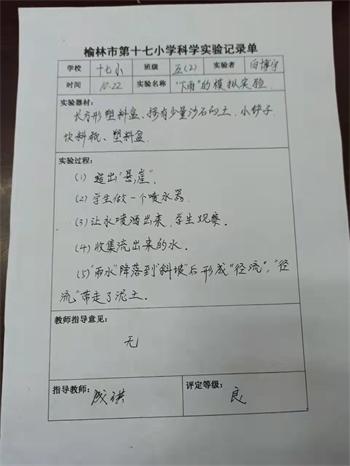 榆林市第十七小学科学实验记录单
学校 十七小 班级 五(2) 实验者
时间 10.22 实验名称 "下雨"的模拟实验
实验器材:
长方形塑料盒、掺有少量沙石的土、小铲子
饮料瓶、塑料盒
实验过程:
(1) 堆出"悬崖".
(2) 学生做一个喷水器.
(3) 让水喷洒出来,学生观察.
(4) 收集流出来的水.
(5) "雨水"降落到"斜坡"后形成"径流","径
流"带走了泥土.
教师指导意见:
无
指导教师: 评定等级:
良